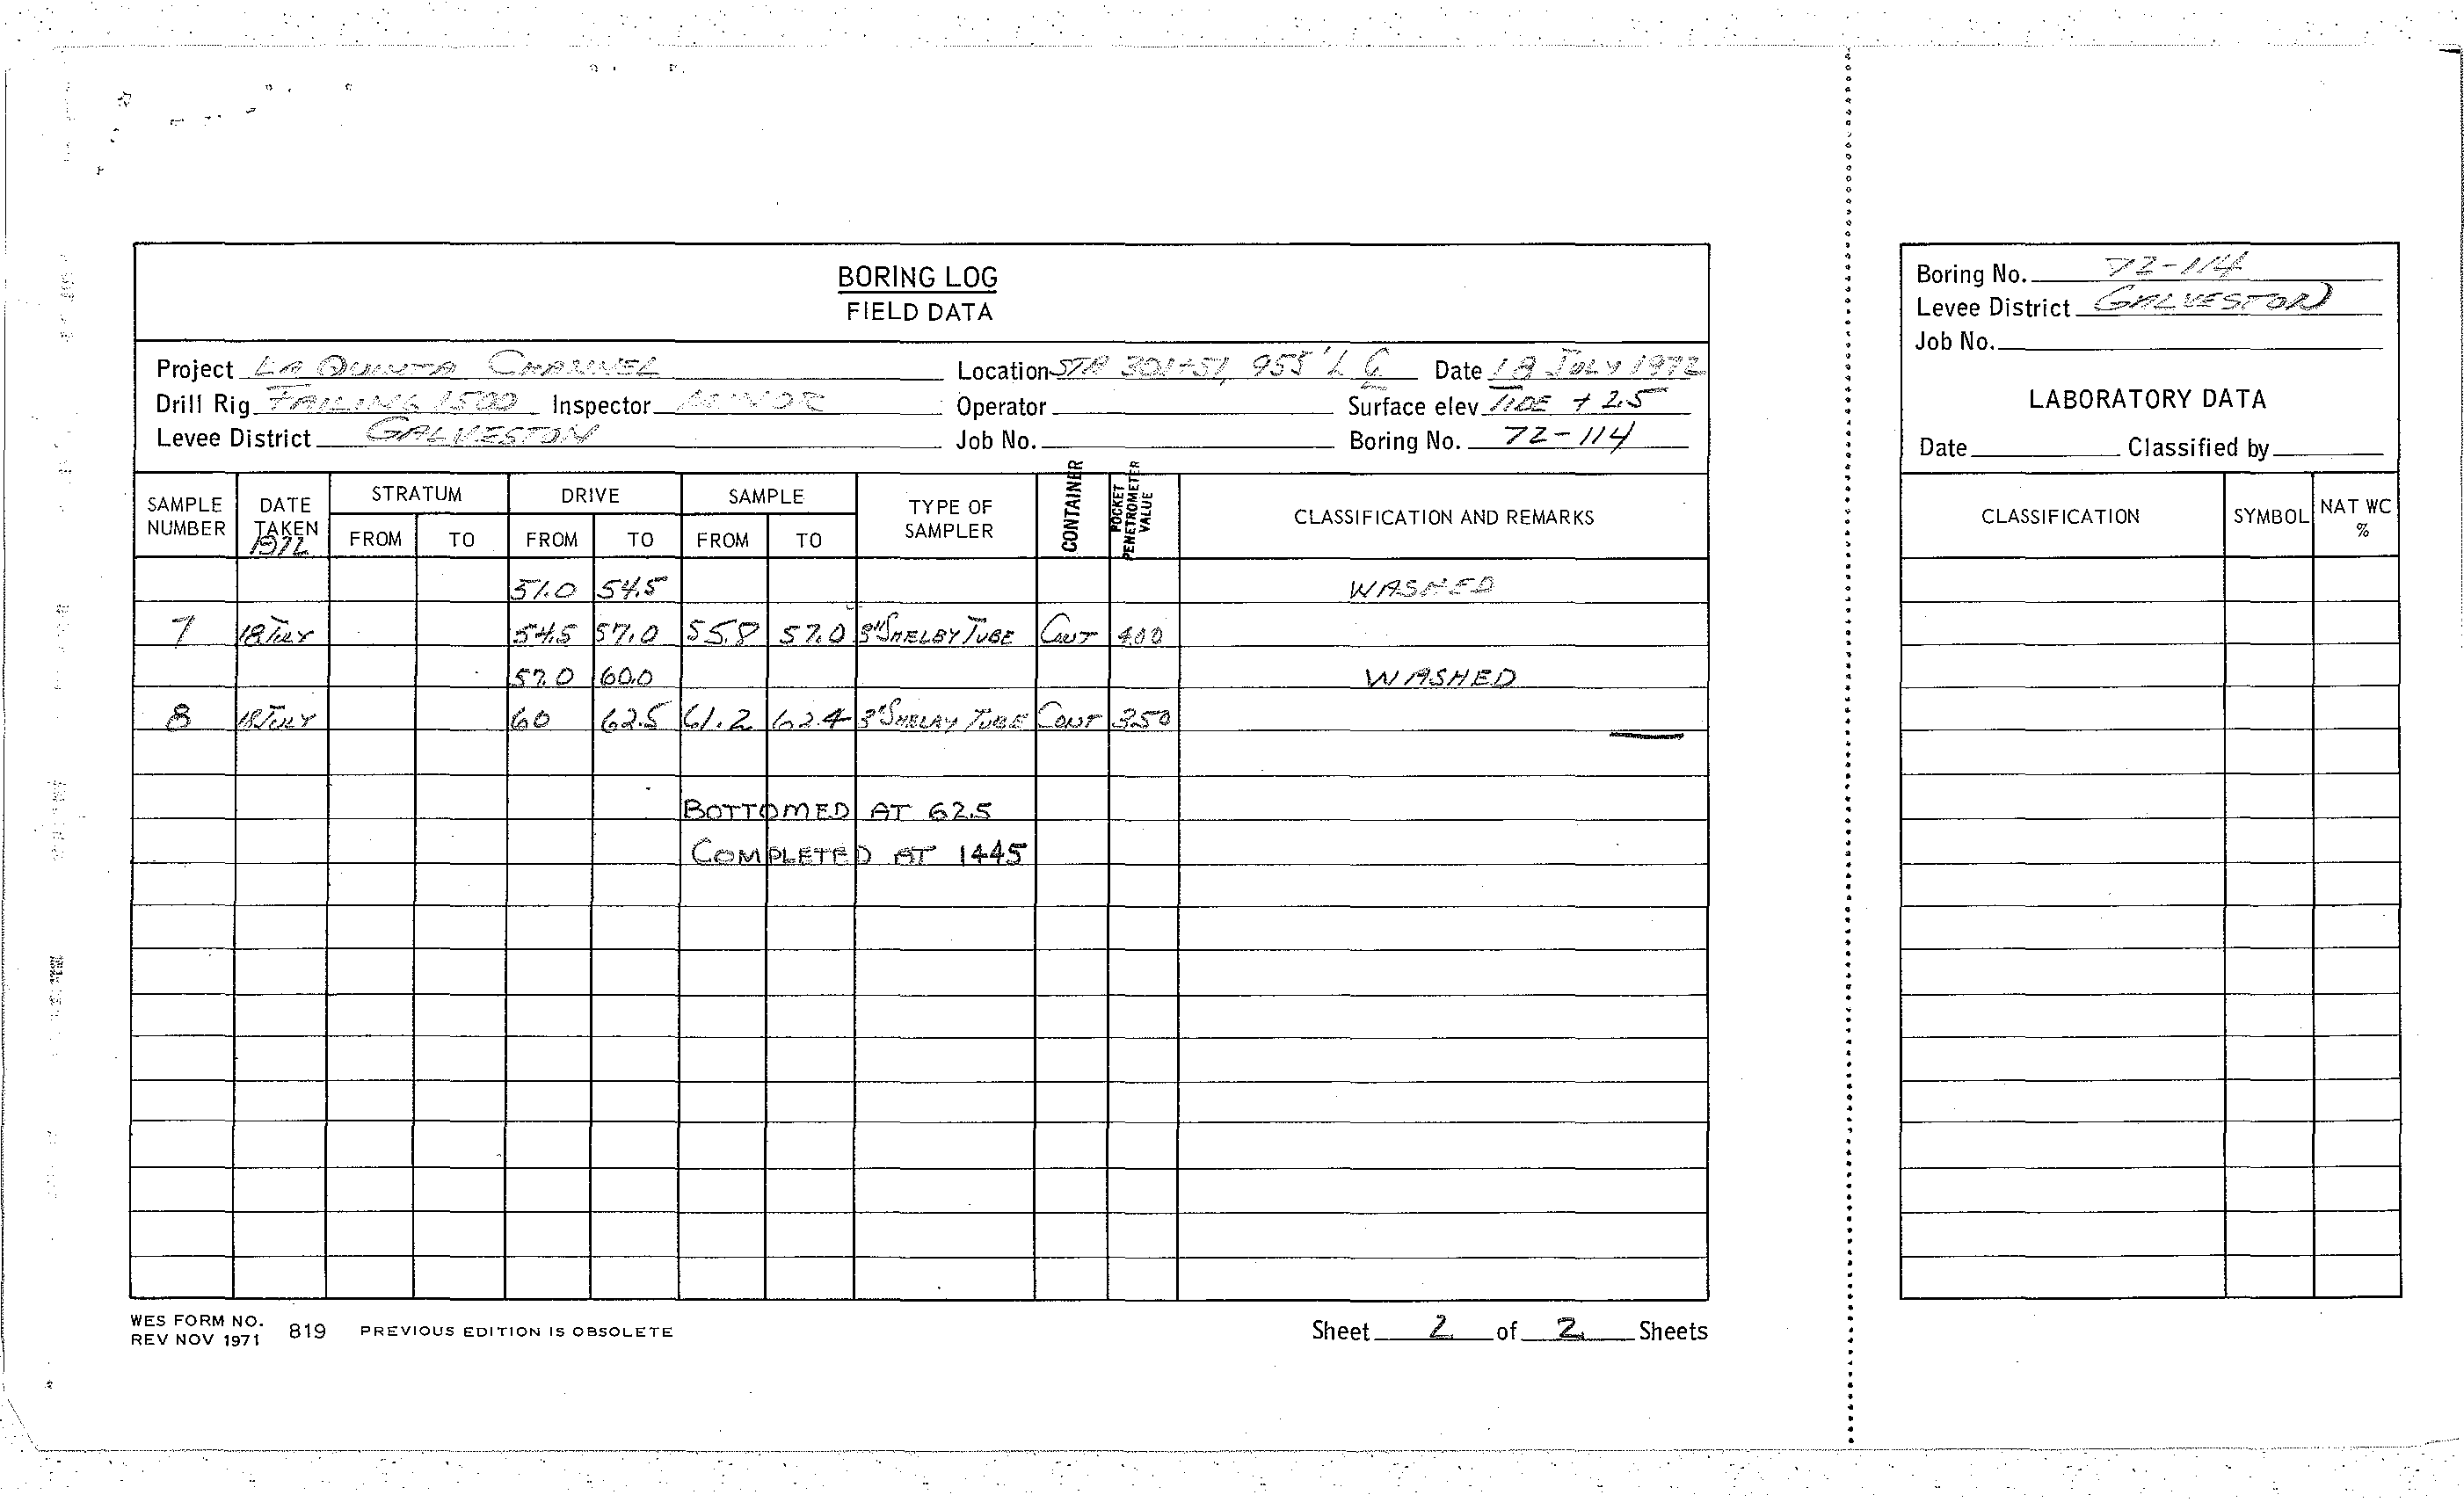 BORING LOG
FIELD DATA
Project LA QUINTA CHANNEL Location STA 301+51, 955' L ℄ Date 18 JULY 1972
Drill Rig FAILING 1500 Inspector MINOR Operator Surface elev TIDE + 2.5
Levee District GALVESTON Job No. Boring No. 72-114
SAMPLE NUMBER DATE TAKEN 1972 STRATUM FROM TO DRIVE FROM TO SAMPLE FROM TO TYPE OF SAMPLER CONTAINER POCKET PENETROMETER VALUE CLASSIFICATION AND REMARKS
51.0 54.5 WASHED
7 18 JULY 54.5 57.0 55.8 57.0 3" SHELBY TUBE CONT 400
57.0 60.0 WASHED
8 18 JULY 60 62.5 61.2 62.4 3" SHELBY TUBE CONT 350
BOTTOMED AT 62.5
COMPLETED AT 1445
WES FORM NO. 819 PREVIOUS EDITION IS OBSOLETE
REV NOV 1971
Sheet 2 of 2 Sheets
Boring No. 72-114
Levee District GALVESTON
Job No.
LABORATORY DATA
Date Classified by
CLASSIFICATION SYMBOL NAT WC %